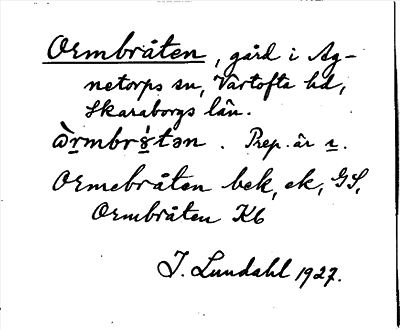 Ormbråten, gård i Ag-
netorps sn, Vartofta hd,
Skaraborgs län.
Prep. är
Ormebråten bek, ek, GS,
Ormbråten K6
I. Lundahl 1927.